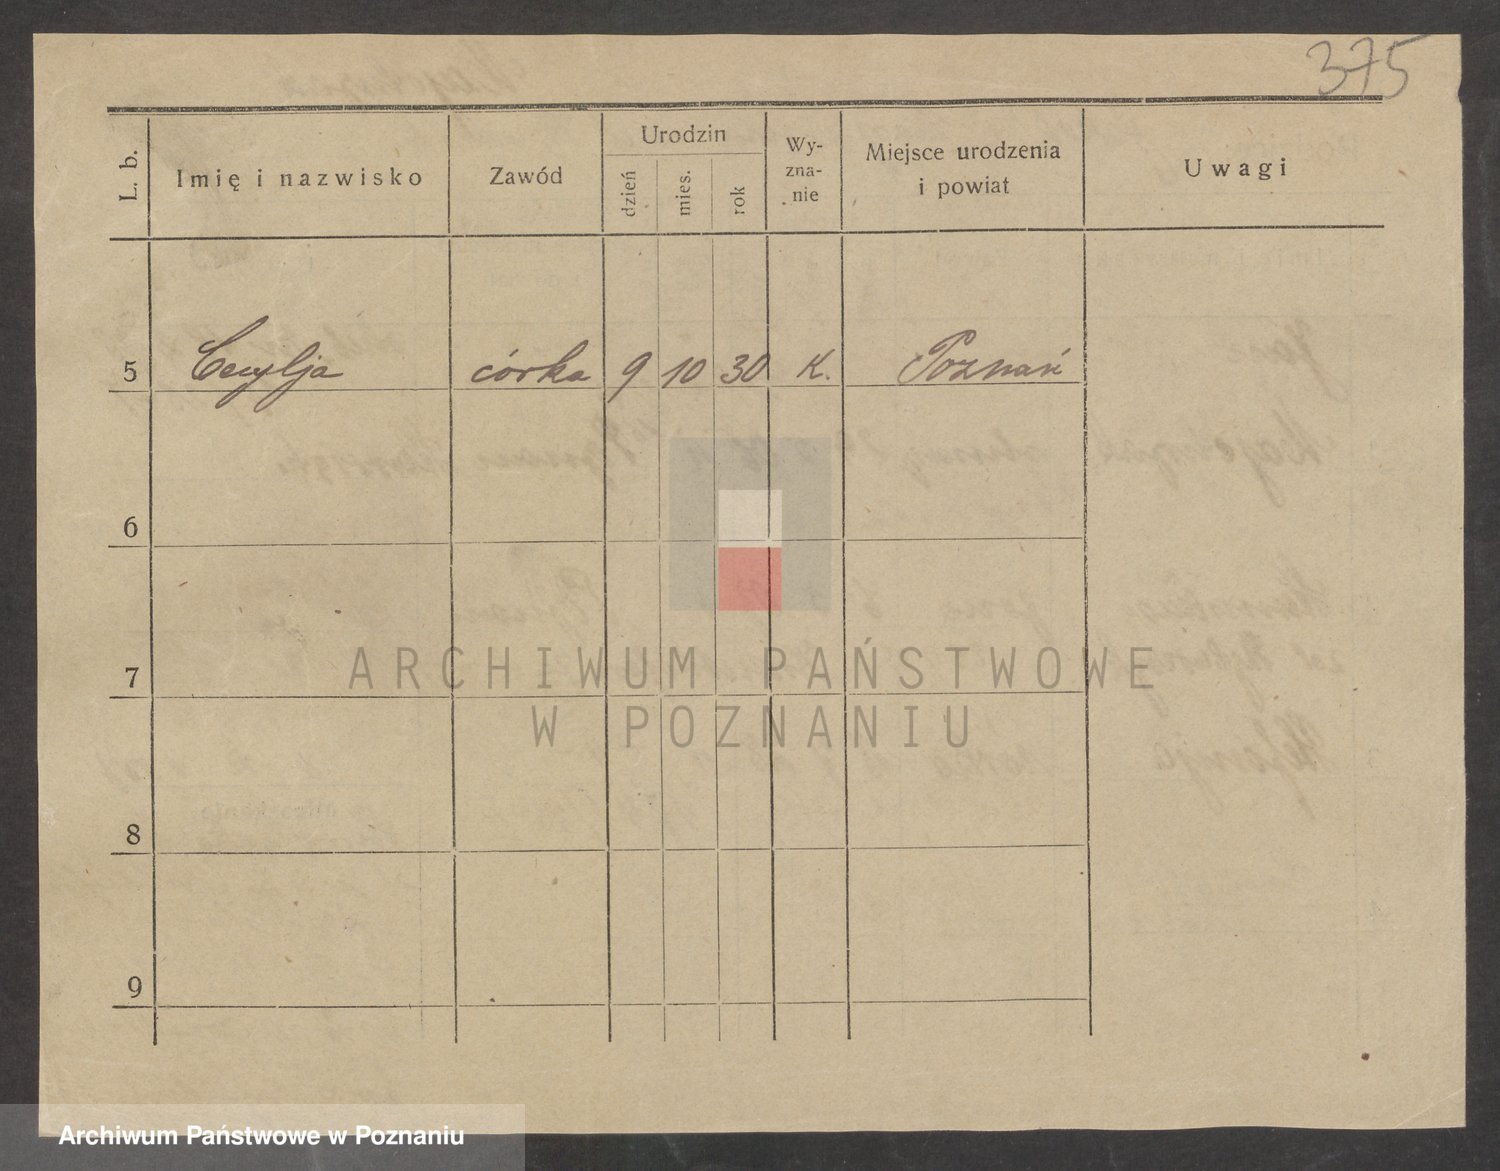 375
L. b.
Imię i nazwisko
Zawód
Urodzin
dzień
mies.
rok
Wy-
zna-
nie
Miejsce urodzenia
i powiat
Uwagi
5 Cecylja córka 9 10 30 K. Poznań
6
7
8
9
ARCHIWUM PAŃSTWOWE
W POZNANIU
Archiwum Państwowe w Poznaniu